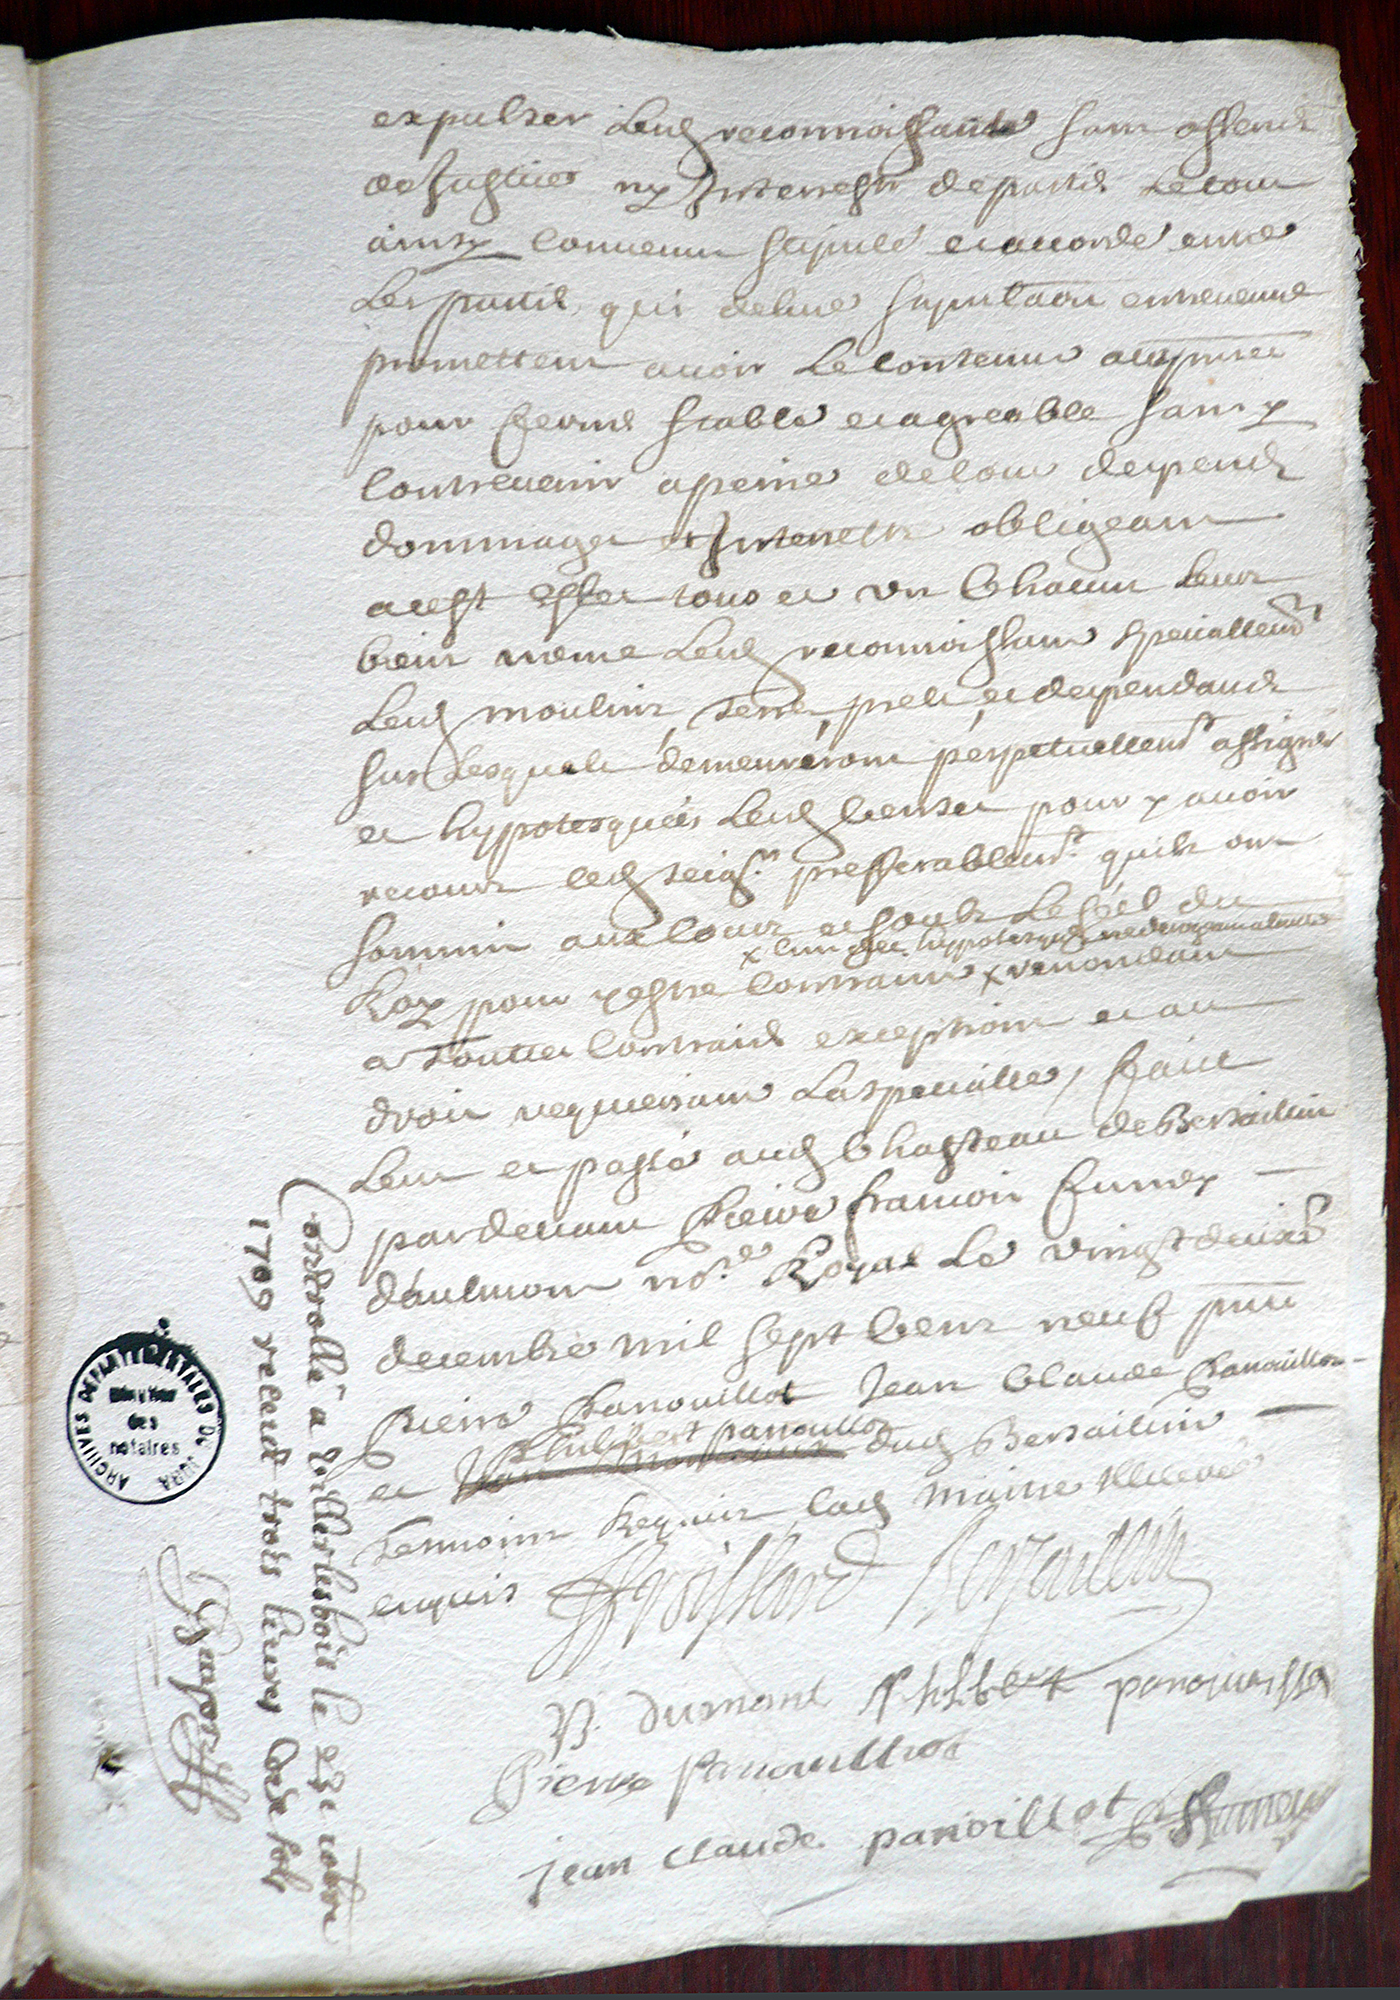 expulser lesd reconnoissants sans offence
de Justice ny Interrests de partie Le tout
ainsy convenu stipulé et accordé entre
Les parties qui de leur stipulation entrevenue
promettent avoir Le contenu aux pntes
pour ferme stable et agreable sans y
contrevenir a peine de tous despends
dommages et Interrests obligeans
a cest effect tous et un chacun leurs
biens mesme Lesd reconnoissans speciallemt
Lesd moulins, terre, prels, et dependances
sur Lesquels demeureront perpetuellemt assignés
et hypotesqués Lesd censes pour y avoir
recours led seigr prefferablemt quils ont
soummis aux cours et soubs Le séel du
x l'une des hyppotesques ne derogeant a lautre
Roy pour y estre contrains x renonceans
a Touttes contraires exceptions et au
droit requerant La specialle, faict
Leu et passé aud Chasteau de Bersaillin
pardevant Pierre françois furney
d'aulmont nore Royal Le vingt deuxe
decembre mil sept cens neuf pnts
Pierre Panouillot Jean Claude Panouillot
et Philibert panouillot dud Bersaillin
Tesmoins Requis lad Maitre Illiterée
enquis
Froissard Bersaillin
B. Dumont Philibert panouillot
Pierre Panouillot
jean claude panoillot
PF Furney
Controllé a Villerlesbois le 23e xbre
1709 receu trois livres dix sols
ARCHIVES DÉPARTEMENTALES DU JURA
Minutier
des
notaires